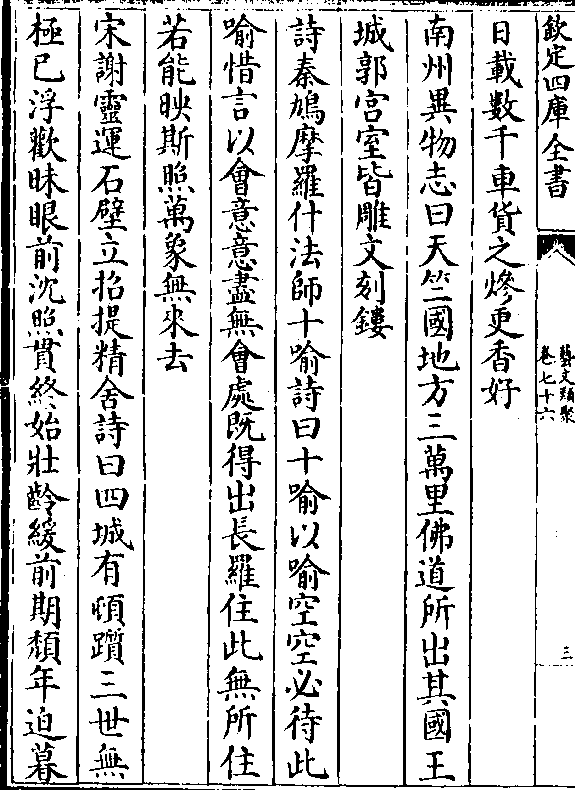 欽定四庫全書
藝文類聚
卷七十六
三
日載數千車貨之熮更香好
南州異物志曰天竺國地方三萬里佛道所出其國王
城郭宮室皆雕文刻鏤
詩秦鳩摩羅什法師十喻詩曰十喻以喻空空必待此
喻惜言以會意意盡無會處既得出長羅住此無所住
若能映斯照萬象無來去
宋謝靈運石壁立招提精舍詩曰四城有頓躓三世無
極已浮歡昧眼前沈照貫終始壯齡緩前期頹年迫暮